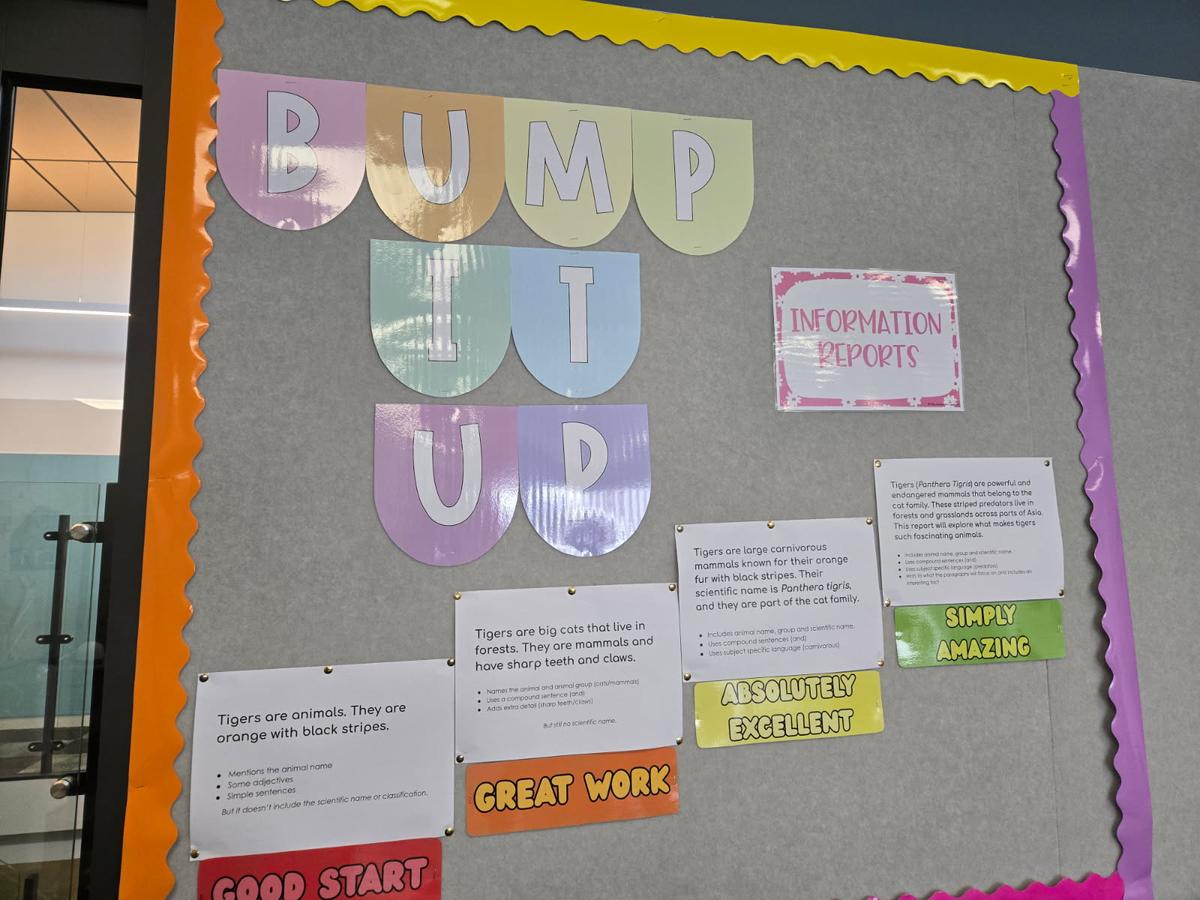 BUMP
IT
UP
INFORMATION
REPORTS
Tigers are animals. They are
orange with black stripes.
• Mentions the animal name
• Some adjectives
• Simple sentences
But it doesn't include the scientific name or classification.
GOOD START
Tigers are big cats that live in
forests. They are mammals and
have sharp teeth and claws.
• Names the animal and animal group (cats/mammals)
• Uses a compound sentence (and)
• Adds extra detail (sharp teeth/claws)
But still no scientific name.
GREAT WORK
Tigers are large carnivorous
mammals known for their orange
fur with black stripes. Their
scientific name is Panthera tigris,
and they are part of the cat family.
• Includes animal name, group and scientific name.
• Uses compound sentences (and)
• Uses subject specific language (carnivorous)
ABSOLUTELY
EXCELLENT
Tigers (Panthera Tigris) are powerful and
endangered mammals that belong to the
cat family. These striped predators live in
forests and grasslands across parts of Asia.
This report will explore what makes tigers
such fascinating animals.
• Includes animal name, group and scientific name.
• Uses compound sentences (and)
• Uses subject specific language (predators)
• to what the paragraphs will focus on and includes an
interesting fact
SIMPLY
AMAZING